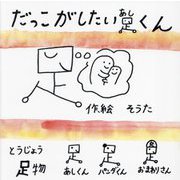 だっこがしたい足くん
あし
作絵 そうた
とうじょう
足物
あしくん
パンダくん
おまわりさん